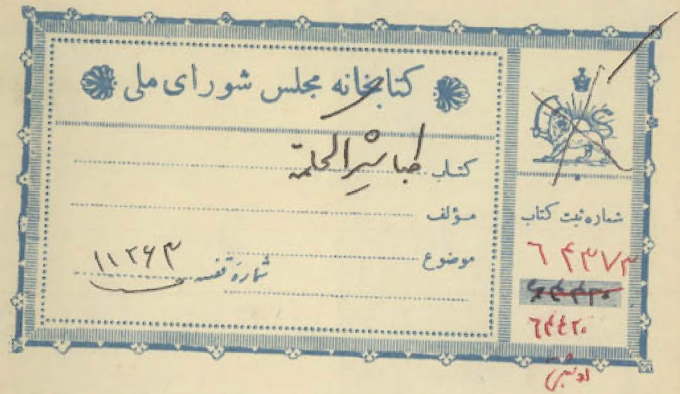 کتابخانه مجلس شورای ملی
کتاب طباشیر الحکمة
مؤلف
موضوع
شماره قفسه ۱۱۲۶۴
شماره ثبت کتاب
۶۴۳۷۳
۶۴۴۲۰